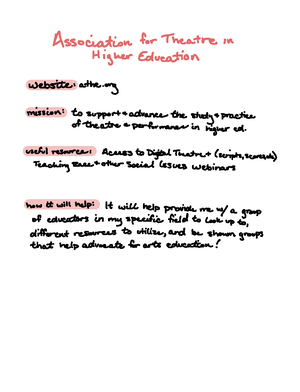 Association for Theatre in
Higher Education
website: athe.org
mission: to support + advance the study + practice
of theatre & performance in higher ed.
useful resource: Access to Digital Theatre+ (scripts,
Teaching Race + other Social Issues Webinars
how it will help: It will help provide me w/ a group
of educators in my specific field to look up to,
different resources to utilize, and be shown groups
that help advocate for arts education!